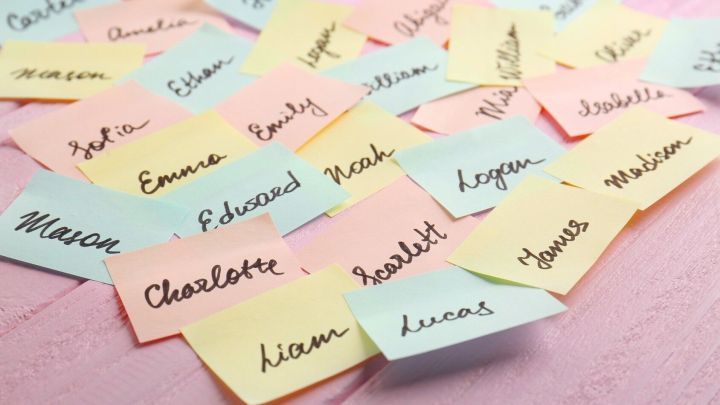 Amelia
Logan
William
Oliver
Mason
Ethan
William
Mia
Isabella
Sofia
Emily
Emma
Noah
Logan
Madison
Mason
Edward
Charlotte
Scarlett
James
Liam
Lucas